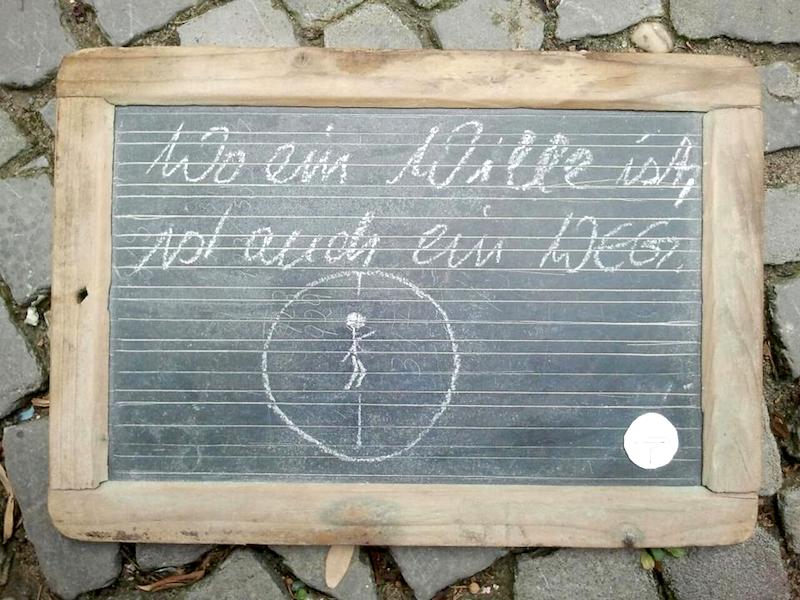 Wo ein Wille ist,
ist auch ein WEG.